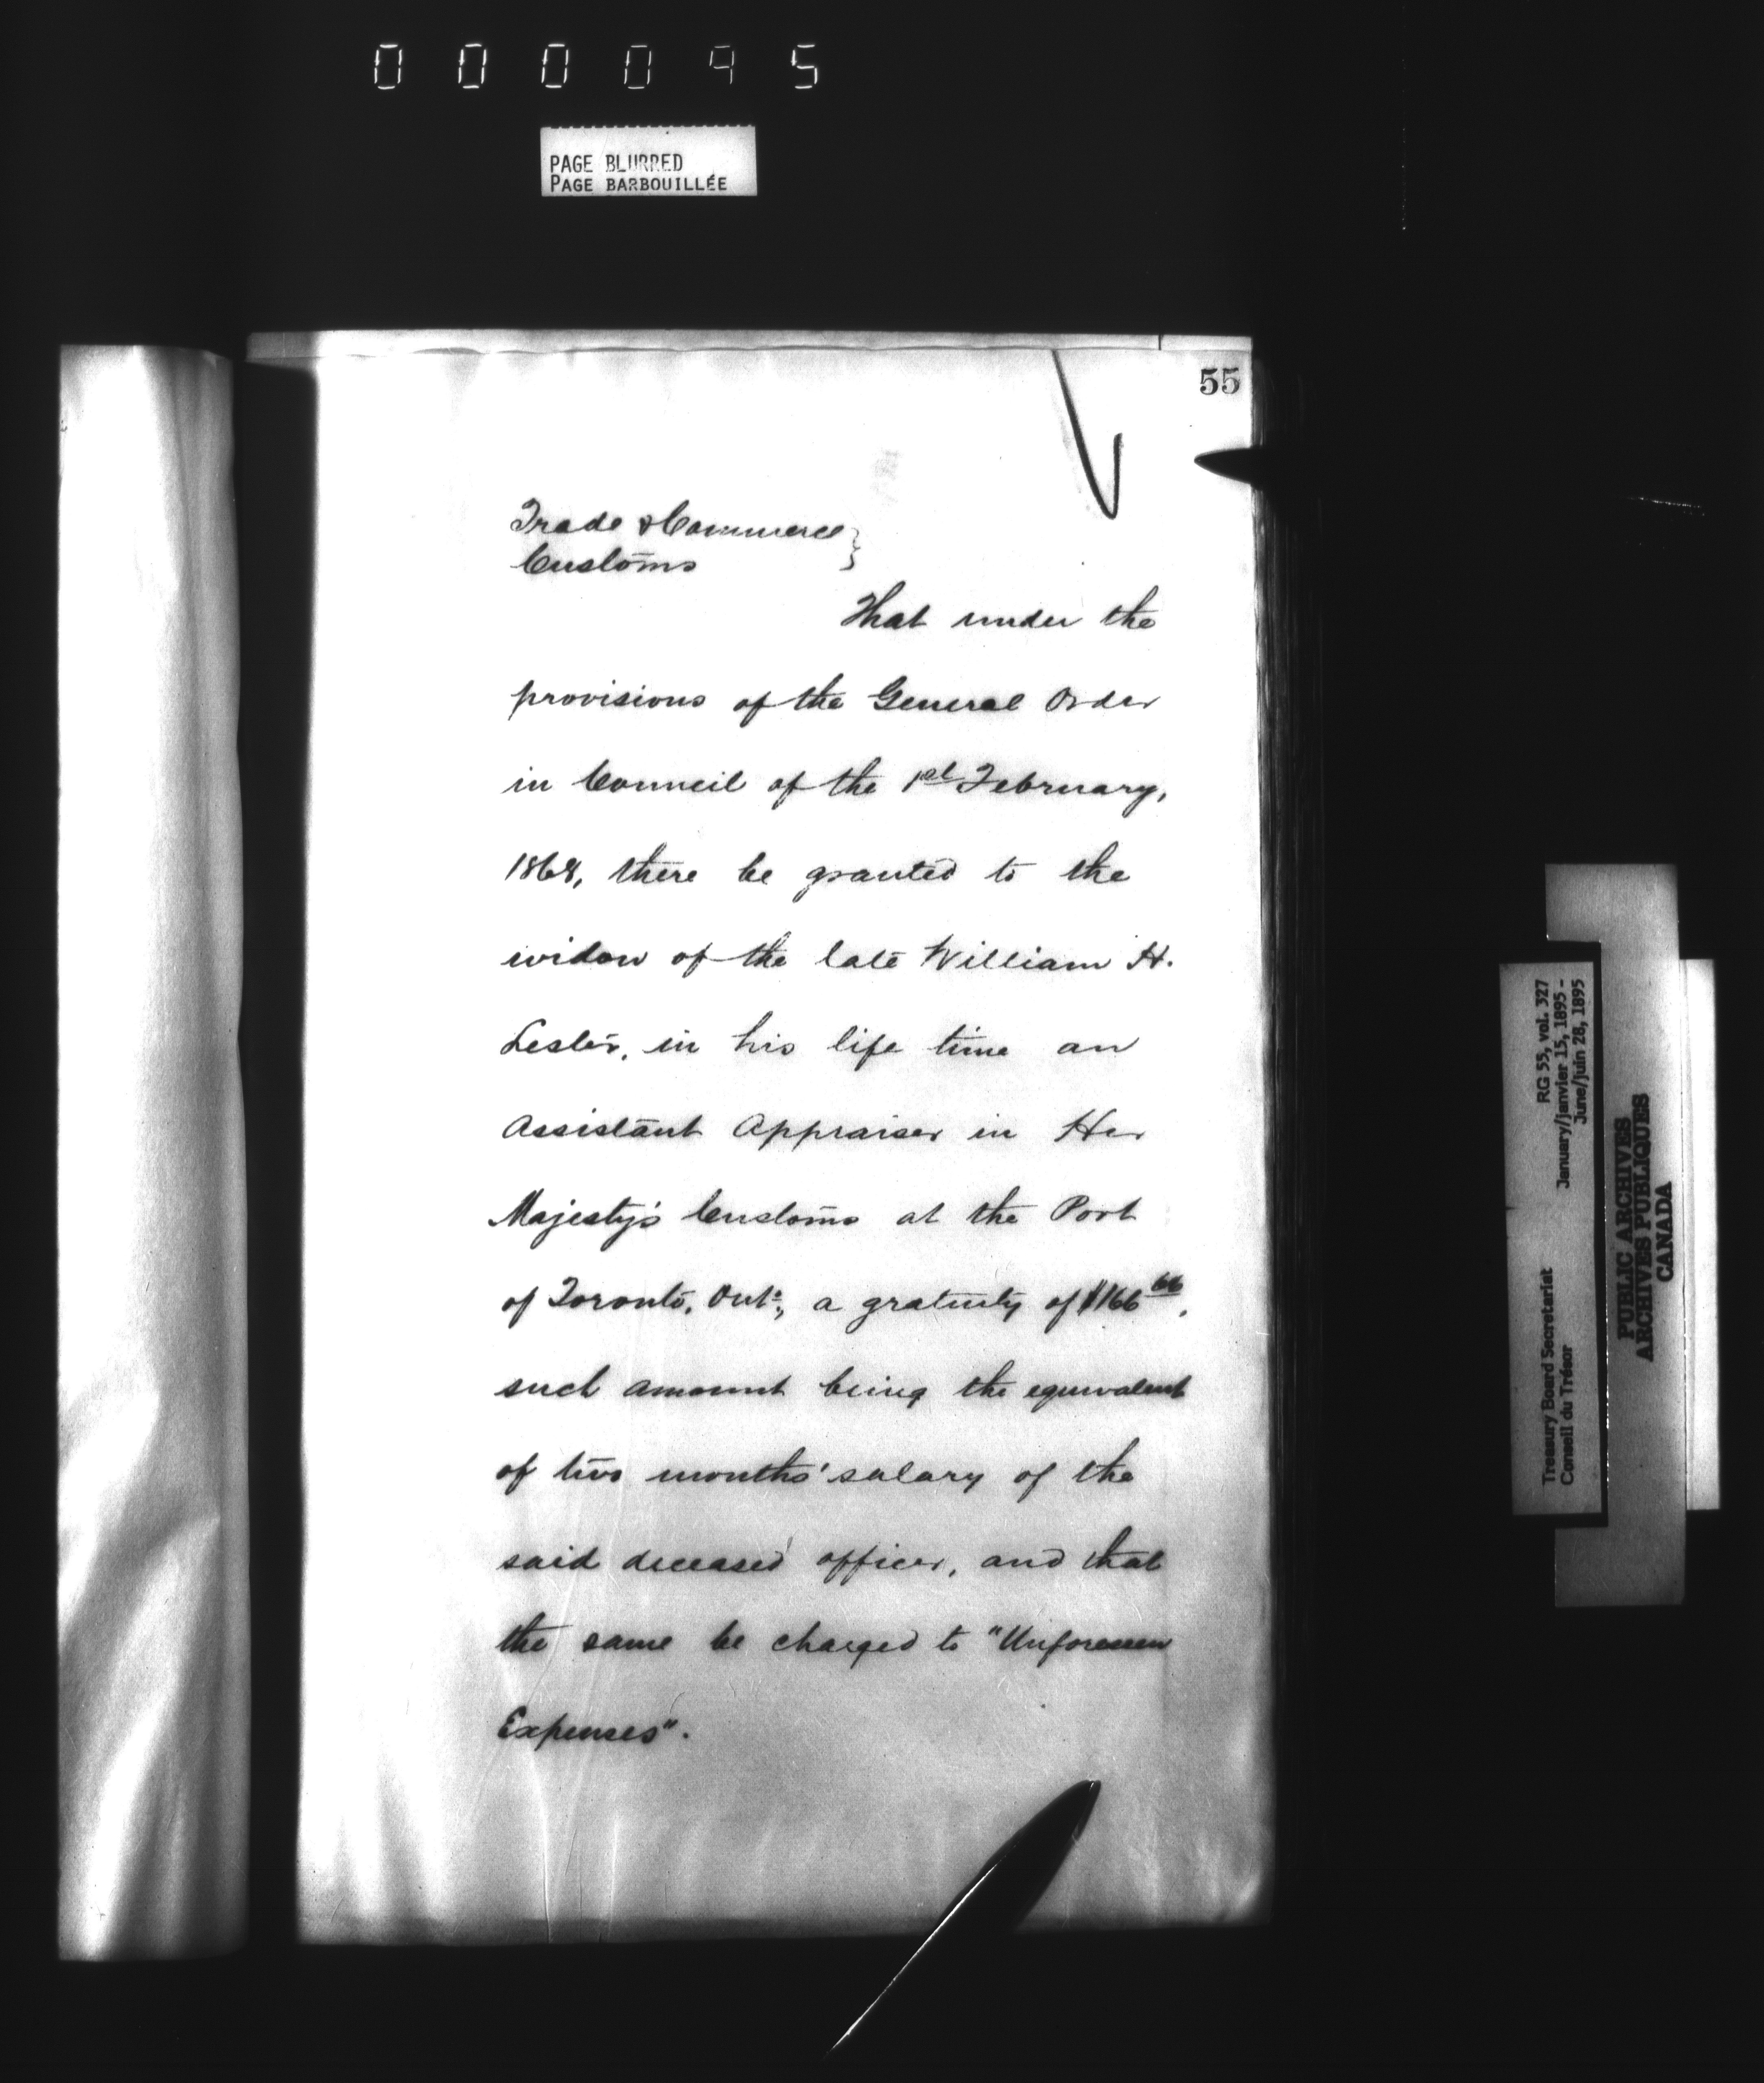 000095
PAGE BLURRED
PAGE BARBOUILLÉE
55
Trade & Commerce }
Customs
That under the
provisions of the General Order
in Council of the 1st February,
1868, there be granted to the
widow of the late William H.
Lester, in his life time an
Assistant Appraiser in Her
Majesty's Customs at the Port
of Toronto, Ont., a gratuity of $166 66,
such amount being the equivalent
of two months' salary of the
said deceased officer, and that
the same be charged to "Unforeseen
Expenses".
Treasury Board Secretariat
Conseil du Trésor
RG 55, vol. 327
January/janvier 15, 1895 -
June/juin 28, 1895
PUBLIC ARCHIVES
ARCHIVES PUBLIQUES
CANADA